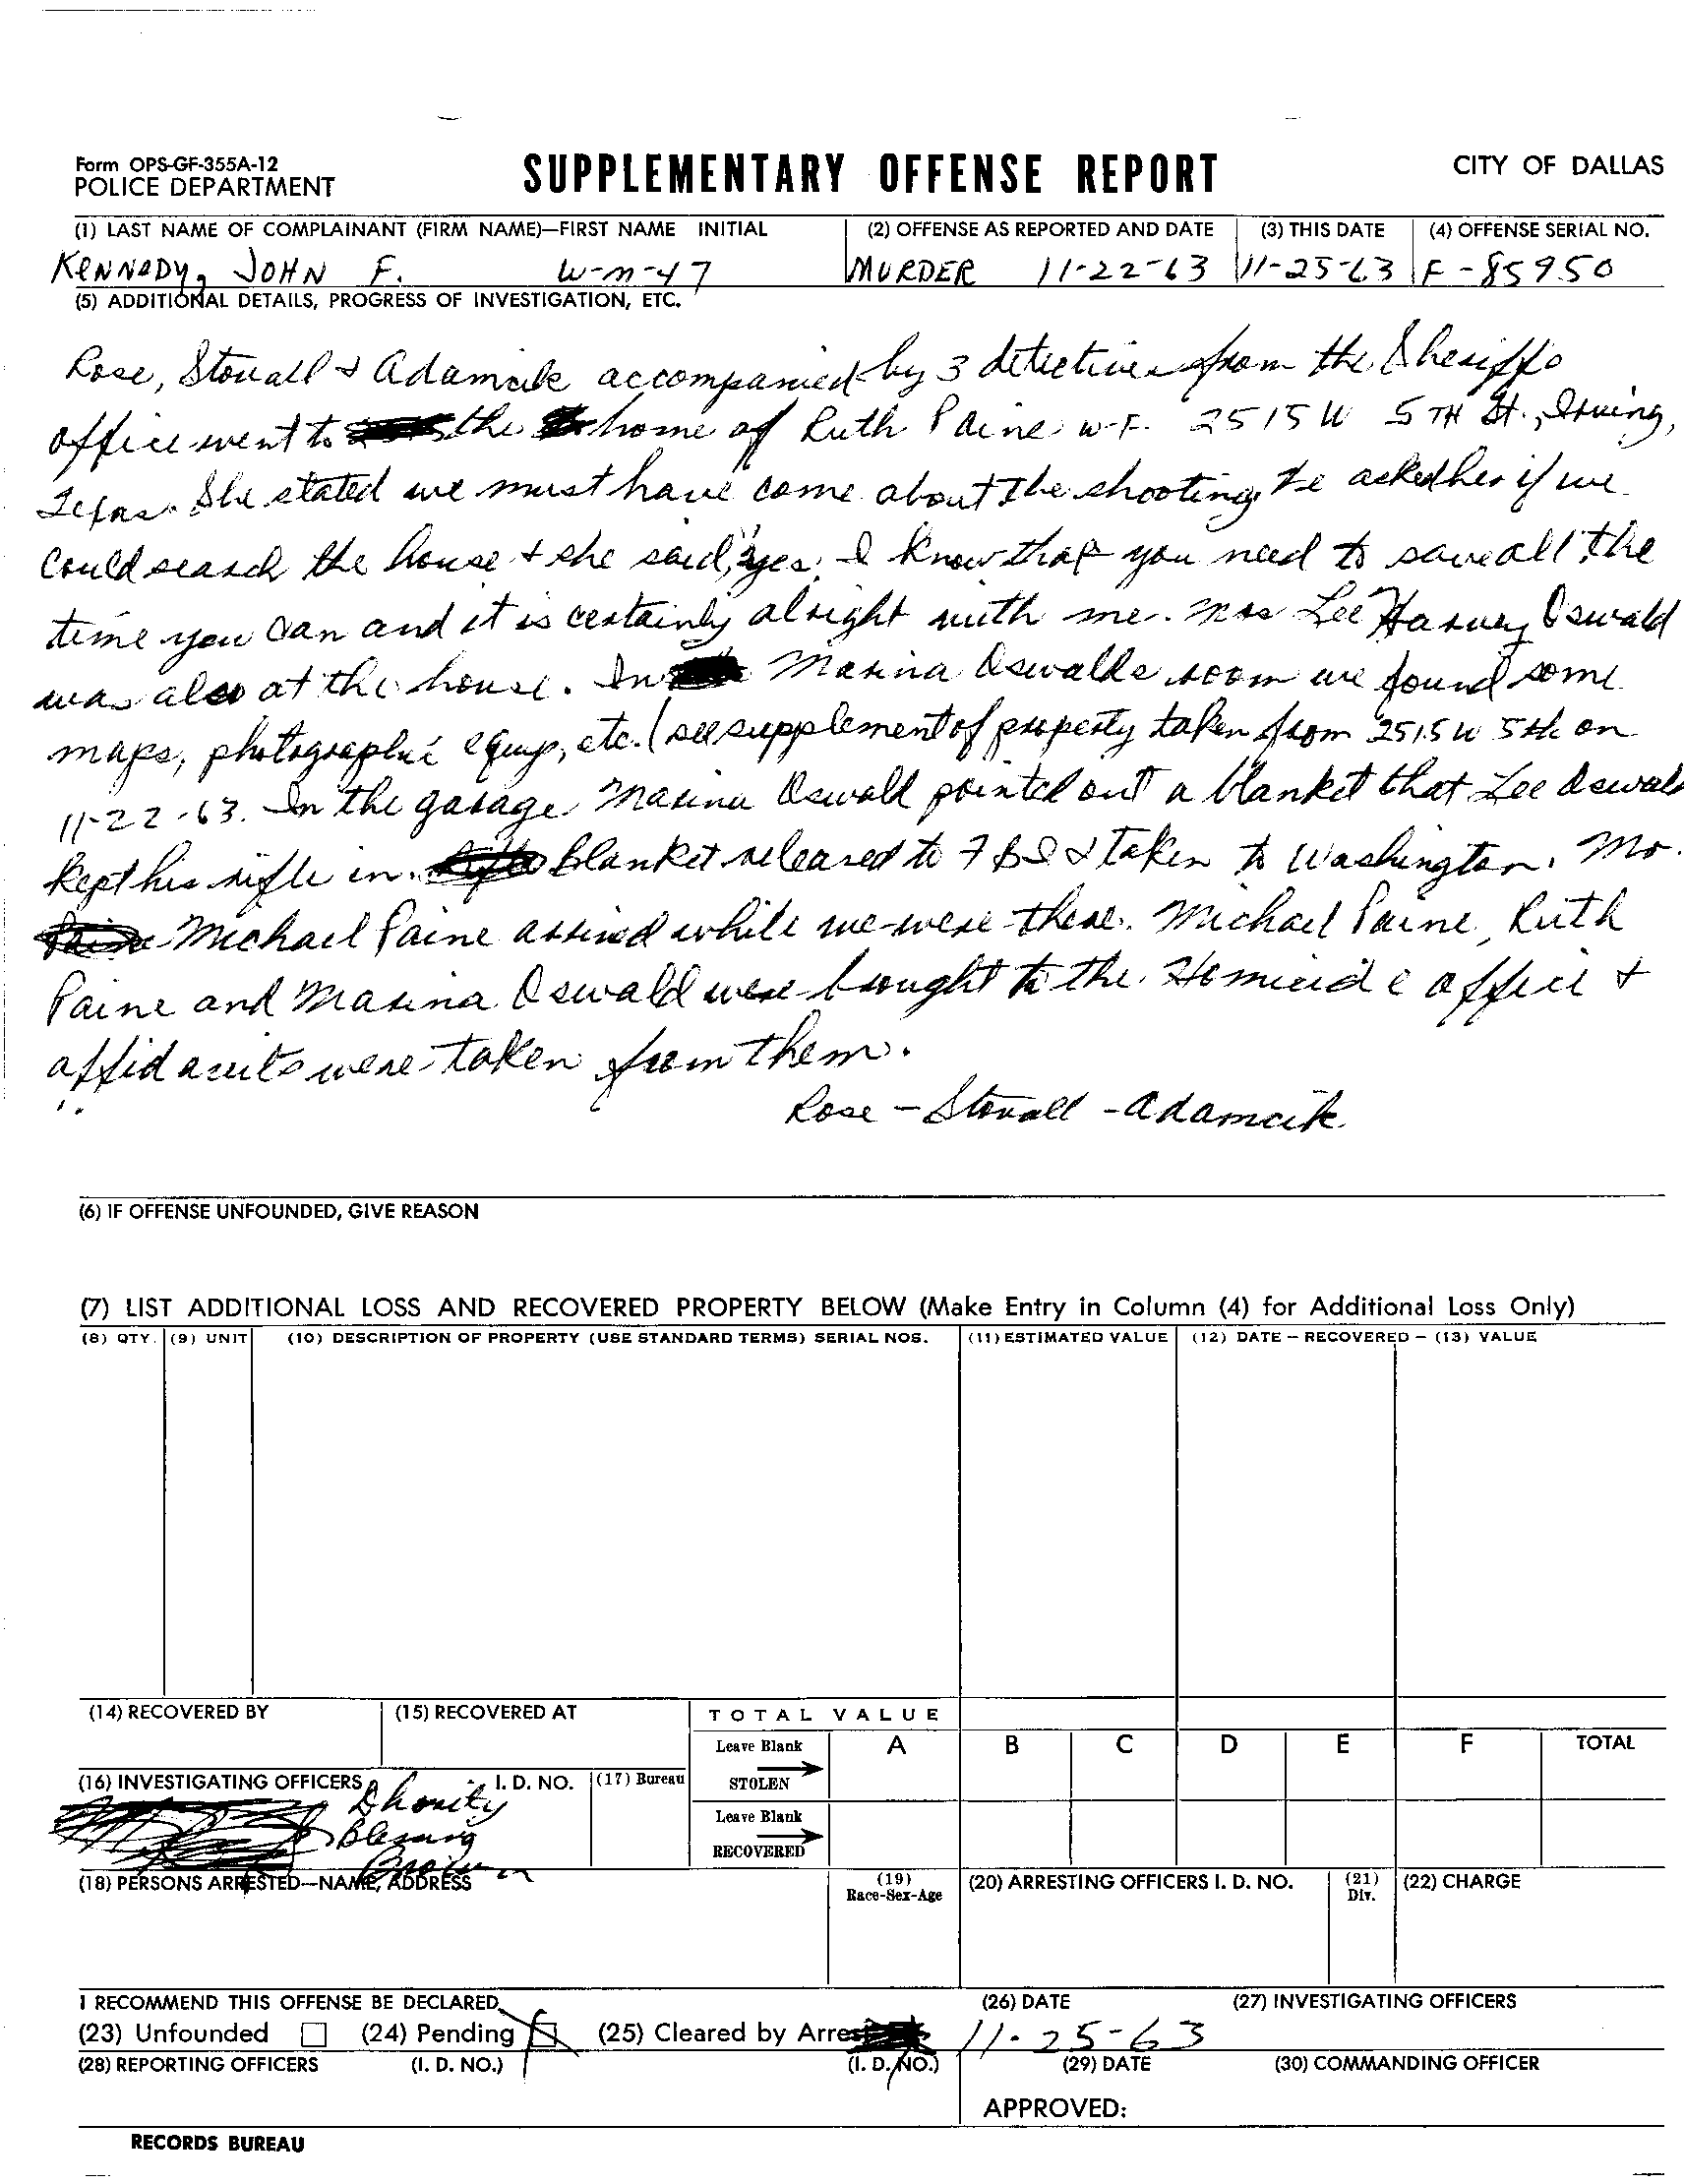 Form OPS-GF-355A-12
POLICE DEPARTMENT
SUPPLEMENTARY OFFENSE REPORT
CITY OF DALLAS
(1) LAST NAME OF COMPLAINANT (FIRM NAME)—FIRST NAME INITIAL
(2) OFFENSE AS REPORTED AND DATE
(3) THIS DATE
(4) OFFENSE SERIAL NO.
KENNEDY, JOHN F. W-M-47
MURDER 11-22-63
11-25-63
F-85950
(5) ADDITIONAL DETAILS, PROGRESS OF INVESTIGATION, ETC.
Rose, Stovall & Adamcik accompanied by 3 detectives from the Sheriffs
office went to the home of Ruth Paine w-F. 2515 W 5TH St., Irving,
Texas. She stated we must have come about the shooting. We asked her if we
could search the house & she said, "yes, I know that you need to save all the
time you can and it is certainly alright with me. Mrs Lee Harvey Oswald
was also at the house. In Marina Oswalds room we found some
maps, photographic equip, etc. (see supplement of property taken from 2515 W 5th on
11-22-63. In the garage Marina Oswald pointed out a blanket that Lee Oswald
kept his rifle in. Blanket released to FBI & taken to Washington. Mr.
Michael Paine arrived while we were there. Michael Paine, Ruth
Paine and Marina Oswald were brought to the Homicide office &
affidavits were taken from them.
Rose - Stovall - Adamcik
(6) IF OFFENSE UNFOUNDED, GIVE REASON
(7) LIST ADDITIONAL LOSS AND RECOVERED PROPERTY BELOW (Make Entry in Column (4) for Additional Loss Only)
(8) QTY. (9) UNIT (10) DESCRIPTION OF PROPERTY (USE STANDARD TERMS) SERIAL NOS. (11) ESTIMATED VALUE (12) DATE – RECOVERED – (13) VALUE
(14) RECOVERED BY
(15) RECOVERED AT
TOTAL VALUE
Leave Blank
STOLEN
A B C D E F TOTAL
Leave Blank
RECOVERED
(16) INVESTIGATING OFFICERS I. D. NO.
(17) Bureau
Dhority
Blessing
Brown
(18) PERSONS ARRESTED—NAME, ADDRESS
(19)
Race-Sex-Age
(20) ARRESTING OFFICERS I. D. NO.
(21)
Div.
(22) CHARGE
I RECOMMEND THIS OFFENSE BE DECLARED
(23) Unfounded (24) Pending (25) Cleared by Arrest
(26) DATE
11-25-63
(27) INVESTIGATING OFFICERS
(28) REPORTING OFFICERS (I. D. NO.) (I. D. NO.)
(29) DATE
(30) COMMANDING OFFICER
APPROVED:
RECORDS BUREAU